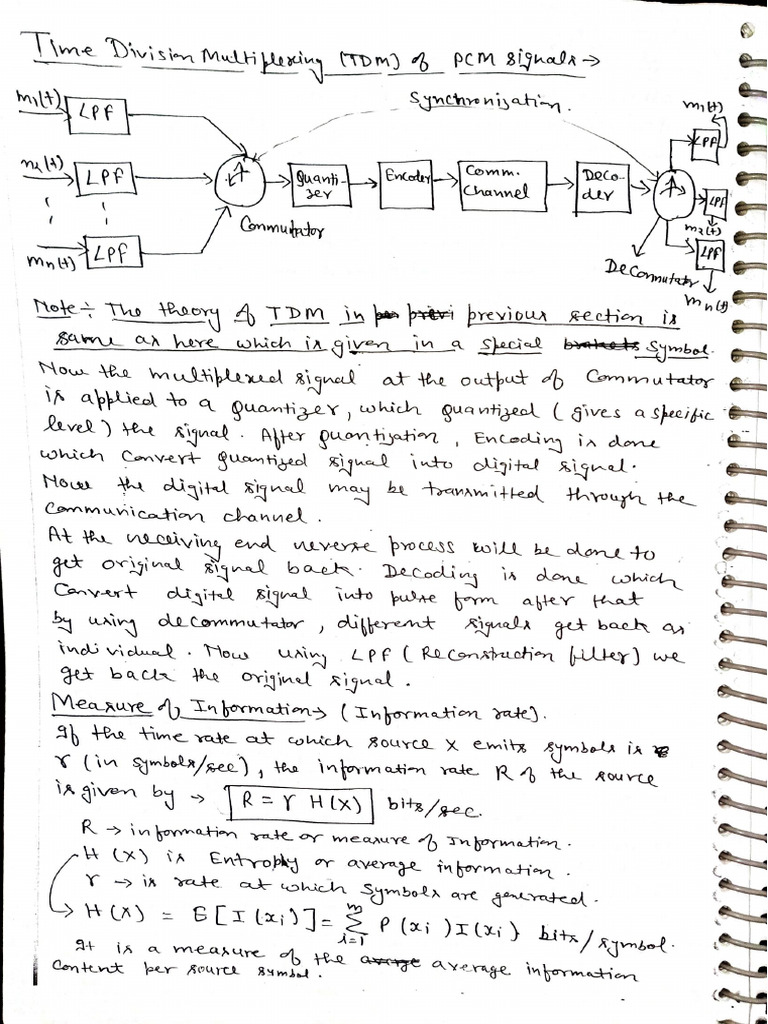 Time Division Multiplexing (TDM) of PCM signals →
Synchronization.
m1(t) LPF
m2(t) LPF
mn(t) LPF
Commutator
Quantizer
Encoder
Comm. Channel
Decoder
Decommutator
LPF m1(t)
LPF m2(t)
LPF mn(t)
Note ÷ The theory of TDM in previous section is
same as here which is given in a special Symbol.
Now the multiplexed signal at the output of Commutator
is applied to a quantizer, which quantized (gives a specific
level) the signal. After quantization, Encoding is done
which convert quantized signal into digital signal.
Now the digital signal may be transmitted through the
Communication channel.
At the receiving end reverse process will be done to
get original signal back. Decoding is done which
Convert digital signal into pulse form after that
by using decommutator, different signals get back as
individual. Now using LPF (Reconstruction filter) we
get back the original signal.
Measure of Information → (Information rate).
If the time rate at which source X emits symbols is
r (in symbols/sec), the information rate R of the source
is given by → R = r H(X) bits/sec.
R → information rate or measure of Information.
H (X) is Entropy or average information.
r → is rate at which symbols are generated.
→ H(X) = E[I(xi)] = m∑i=1 P(xi) I(xi) bits/symbol.
It is a measure of the average information
Content per source symbol.